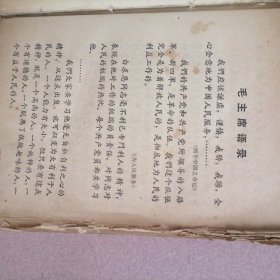 毛主席语录
我们应该谦虚,谨慎,戒骄,戒躁,全
心全意地为中国人民服务,……
《两个中国之命运》
我们的共产党和共产党所领导的八路
军、新四军,是革命的队伍。我们这个队伍
完全是为着解放人民的,是彻底地为人民的
利益工作的。
《为人民服务》
白求恩同志毫不利己专门利人的精神,
表现在他对工作的极端的负责任,对同志对
人民的极端的热忱。每个共产党员都要学习
他。
…………
我们大家要学习他毫无自私自利之心的
精神。从这点出发,就可以变为大有利于人
民的人。一个人能力有大小,但只要有这点
精神,就是一个高尚的人,一个纯粹的人,一
个有道德的人,一个脱离了低级趣味的人,一
个有益于人民的人。